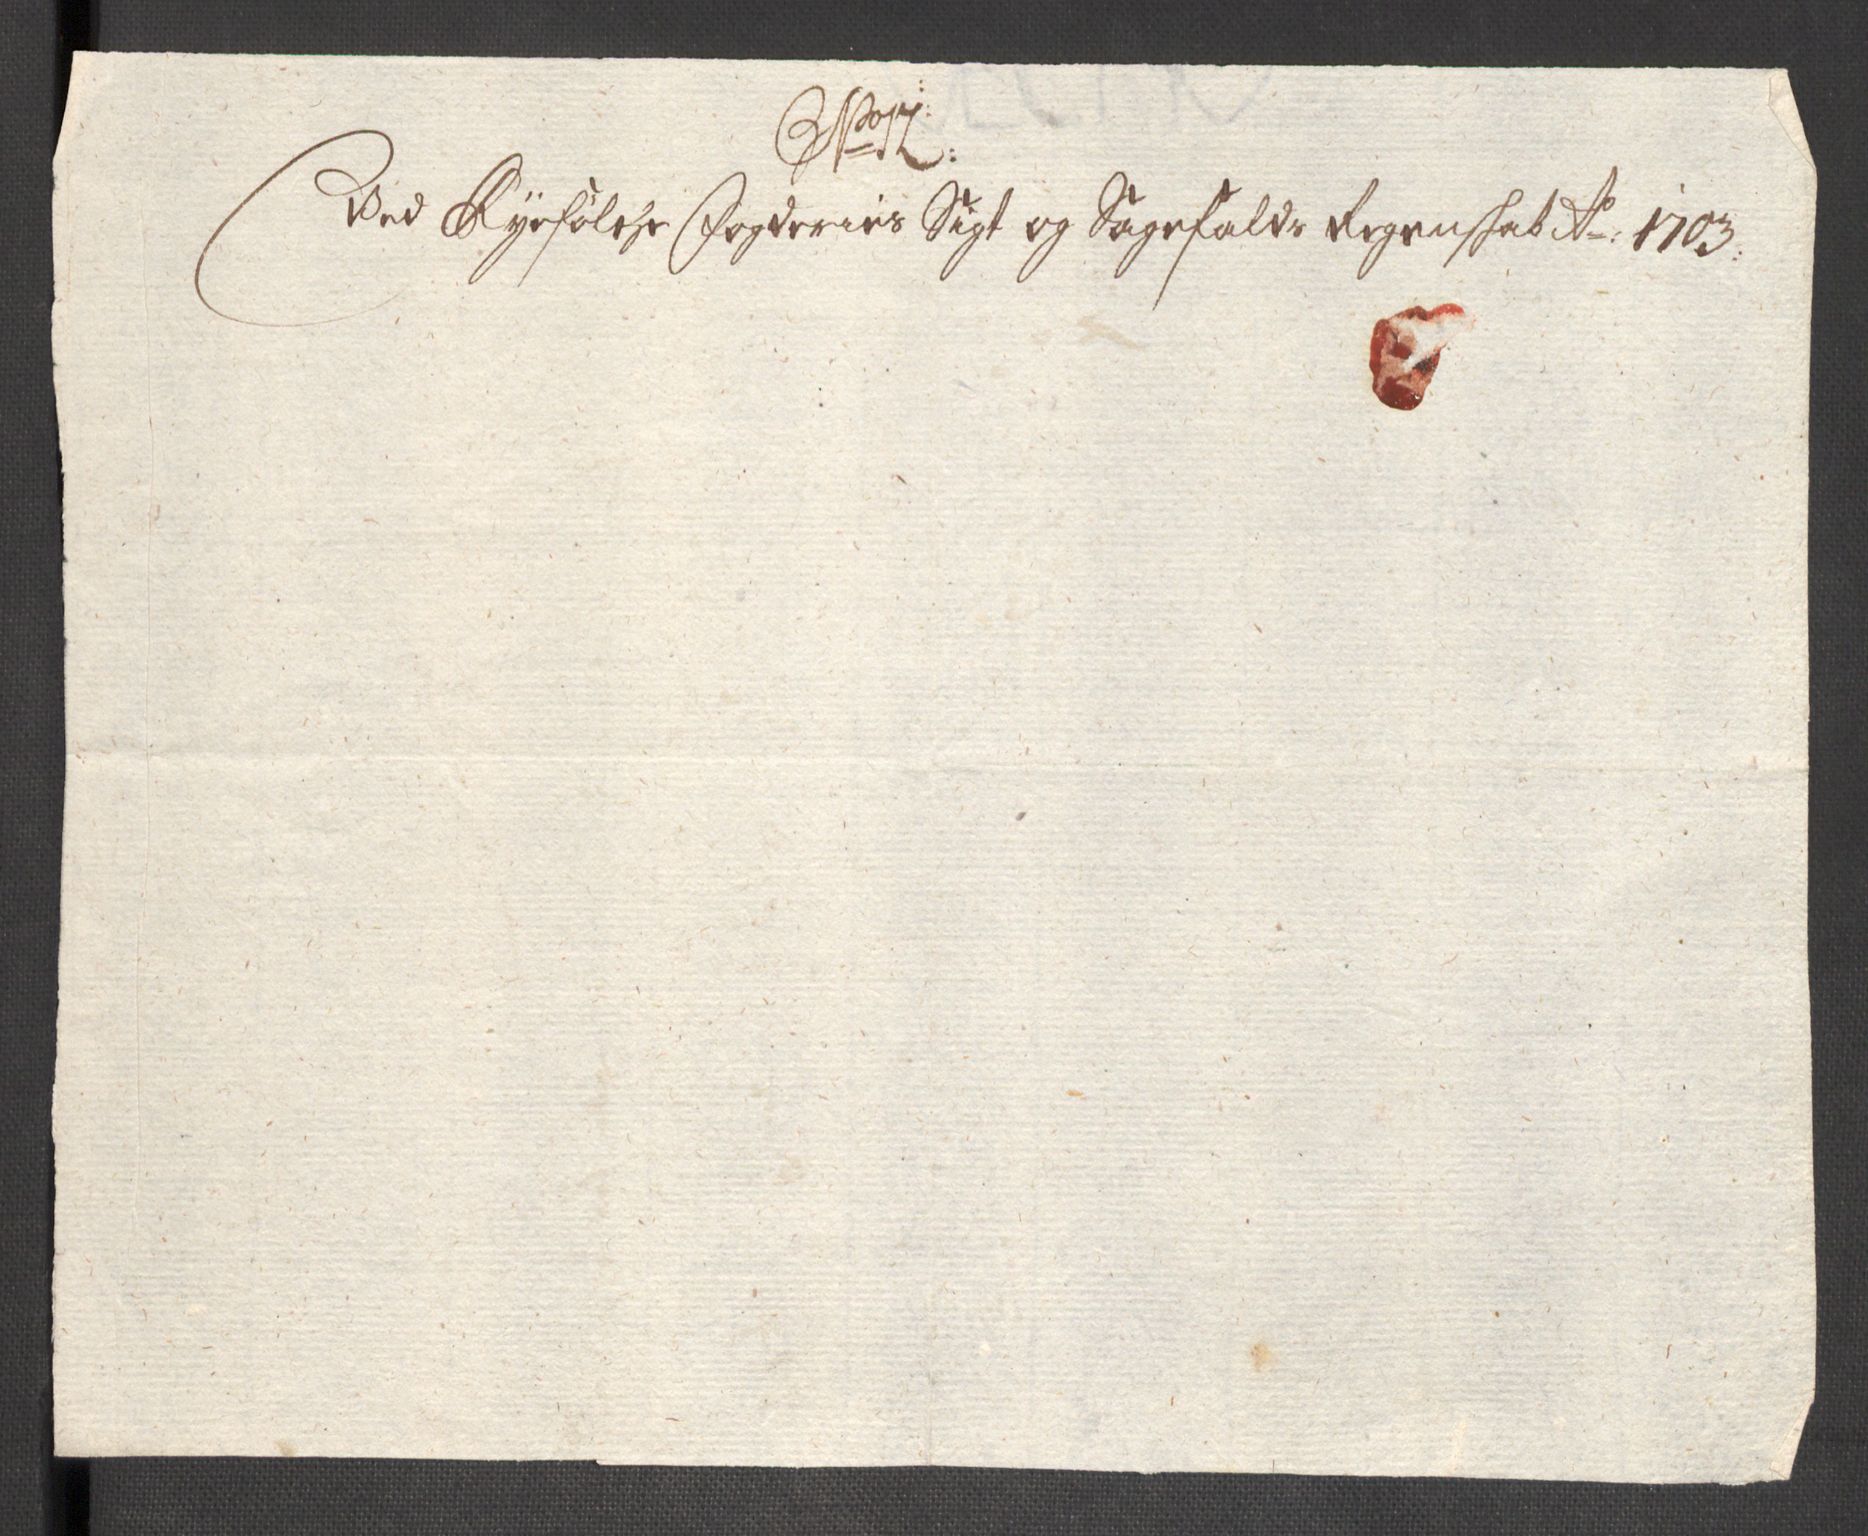 No 12:
Ved Ryefølche Fogderies Sigt og Sagefalds Regenskab Ao: 1703: